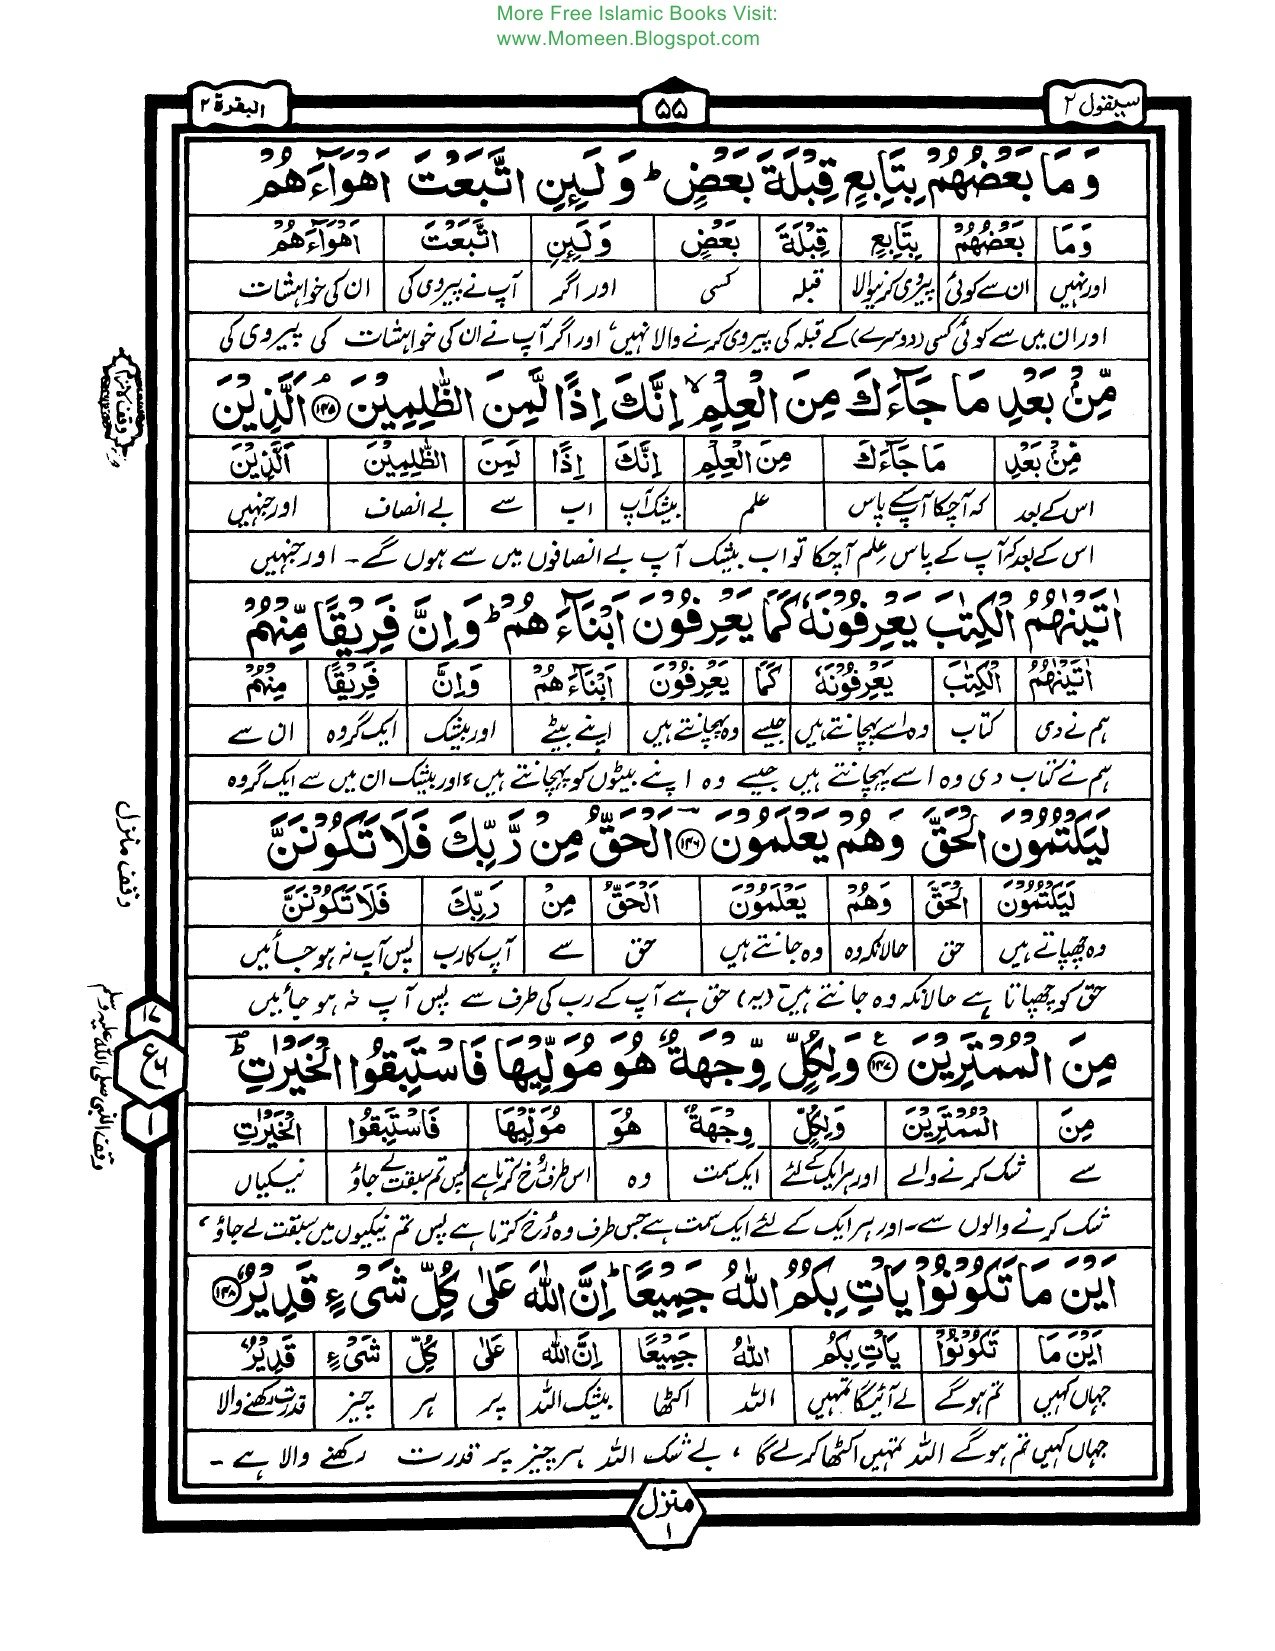 More Free Islamic Books Visit:
www.Momeen.Blogspot.com
سیقول ۲
۵۵
البقرة ۲
وَمَا بَعْضُهُمْ بِتَابِعٍ قِبْلَةَ بَعْضٍ ؕ وَلَئِنِ اتَّبَعْتَ اَهْوَآءَهُمْ
وَمَا بَعْضُهُمْ بِتَابِعٍ قِبْلَةَ بَعْضٍ وَلَئِنِ اتَّبَعْتَ اَهْوَآءَهُمْ
اور نہیں ان سے کوئی پیروی کرنیوالا قبلہ کسی اور اگر آپ نے پیروی کی ان کی خواہشات
اور ان میں سے کوئی کسی (دوسرے) کے قبلہ کی پیروی کرنے والا نہیں، اور اگر آپ نے ان کی خواہشات کی پیروی کی
مِّنْۢ بَعْدِ مَا جَآءَكَ مِنَ الْعِلْمِ ۙ اِنَّكَ اِذًا لَّمِنَ الظّٰلِمِيْنَ ۝۱۴۵ۘ اَلَّذِيْنَ
مِّنْۢ بَعْدِ مَا جَآءَكَ مِنَ الْعِلْمِ اِنَّكَ اِذًا لَّمِنَ الظّٰلِمِيْنَ اَلَّذِيْنَ
اس کے بعد کہ آچکا آپکے پاس علم بیشک آپ اب سے بے انصاف اور جنہیں
اس کے بعد کہ آپ کے پاس علم آچکا تو اب بیشک آپ بے انصافوں میں سے ہوں گے۔ اور جنہیں
اٰتَيْنٰهُمُ الْكِتٰبَ يَعْرِفُوْنَهٗ كَمَا يَعْرِفُوْنَ اَبْنَآءَهُمْ ؕ وَاِنَّ فَرِيْقًا مِّنْهُمْ
اٰتَيْنٰهُمُ الْكِتٰبَ يَعْرِفُوْنَهٗ كَمَا يَعْرِفُوْنَ اَبْنَآءَهُمْ وَاِنَّ فَرِيْقًا مِّنْهُمْ
ہم نے دی کتاب وہ اسے پہچانتے ہیں جیسے وہ پہچانتے ہیں اپنے بیٹے اور بیشک ایک گروہ ان سے
ہم نے کتاب دی وہ اسے پہچانتے ہیں جیسے وہ اپنے بیٹوں کو پہچانتے ہیں، اور بیشک ان میں سے ایک گروہ
لَيَكْتُمُوْنَ الْحَقَّ وَهُمْ يَعْلَمُوْنَ ۝۱۴۶ اَلْحَقُّ مِنْ رَّبِّكَ فَلَا تَكُوْنَنَّ
لَيَكْتُمُوْنَ الْحَقَّ وَهُمْ يَعْلَمُوْنَ اَلْحَقُّ مِنْ رَبِّكَ فَلَا تَكُوْنَنَّ
وہ چھپاتے ہیں حق حالانکہ وہ وہ جانتے ہیں حق سے آپ کا رب پس آپ نہ ہو جائیں
حق کو چھپاتا ہے حالانکہ وہ جانتے ہیں۔ (یہ) حق ہے آپ کے رب کی طرف سے پس آپ نہ ہو جائیں
مِنَ الْمُمْتَرِيْنَ ۝۱۴۷ وَلِكُلٍّ وِّجْهَةٌ هُوَ مُوَلِّيْهَا فَاسْتَبِقُوا الْخَيْرٰتِ ؕ
مِنَ الْمُمْتَرِيْنَ وَلِكُلٍّ وِجْهَةٌ هُوَ مُوَلِّيْهَا فَاسْتَبِقُوا الْخَيْرٰتِ
سے شک کرنے والے اور ہر ایک کے لئے ایک سمت وہ اس طرف رُخ کرتا ہے پس تم سبقت لے جاؤ نیکیاں
شک کرنے والوں سے۔ اور ہر ایک کے لئے ایک سمت ہے جس طرف وہ رُخ کرتا ہے پس تم نیکیوں میں سبقت لے جاؤ،
اَيْنَ مَا تَكُوْنُوْا يَاْتِ بِكُمُ اللّٰهُ جَمِيْعًا ؕ اِنَّ اللّٰهَ عَلٰى كُلِّ شَىْءٍ قَدِيْرٌ ۝۱۴۸
اَيْنَ مَا تَكُوْنُوْا يَاْتِ بِكُمُ اللّٰهُ جَمِيْعًا اِنَّ اللّٰهَ عَلٰى كُلِّ شَىْءٍ قَدِيْرٌ
جہاں کہیں تم ہو گے لے آئیگا تمہیں اللہ اکٹھا بیشک اللہ پر ہر چیز قدرت رکھنے والا
جہاں کہیں تم ہو گے اللہ تمہیں اکٹھا کر لے گا، بے شک اللہ ہر چیز پر قدرت رکھنے والا ہے۔
وقف لازم
وقف منزل
وقف النبی صلی اللہ علیہ وسلم
۱۷
ع ۶
۱
منزل
۱